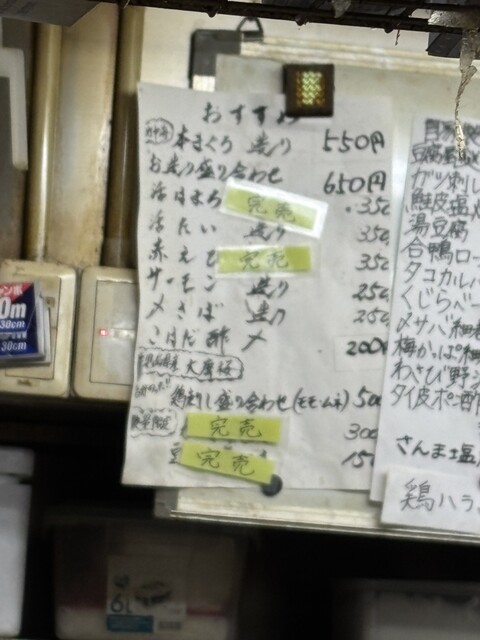 おすすめ
本まぐろ 造り 550円
お造り盛り合わせ 650円
活はまち 完売 350
活たい 造り 350
赤えび 完売 350
サーモン 造り 250
〆さば 造り 250
こはだ酢〆 200円
鶏刺し盛り合わせ(モモ・ムネ) 500
数量限定 完売 300
完売 150
豆腐
ガツ刺し
鮭皮塩
湯豆腐
合鴨ロー
タコカルパ
くじらベー
〆サバ
梅かっぱ
わさび野
タイ皮ポン酢
さんま塩
鶏ハラ
0m
30cm
30cm
6L